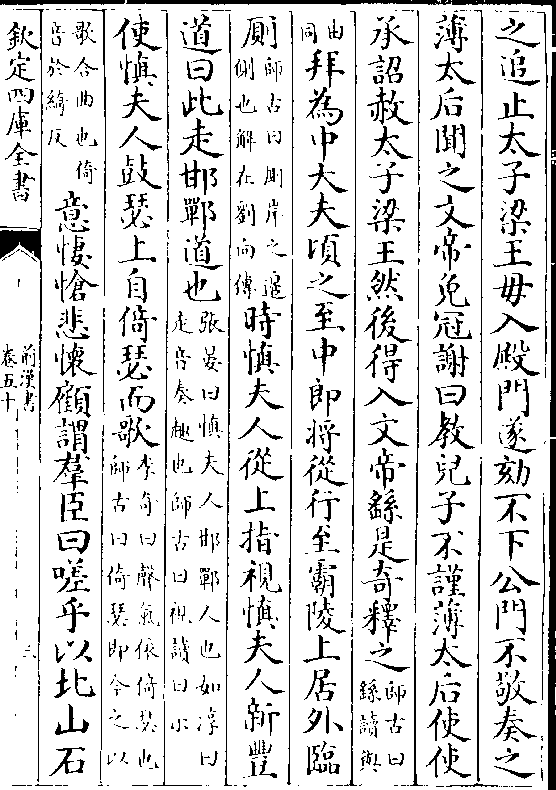 之追止太子梁王毋入殿門遂劾不下公門不敬奏之
薄太后聞之文帝免冠謝曰教兒子不謹薄太后使使
承詔赦太子梁王然後得入文帝繇是奇釋之師古曰繇讀與
由同拜為中大夫頃之至中郎將從行至霸陵上居外臨
廁師古曰廁岸之邊側也解在劉向傳時慎夫人從上指視慎夫人新豐
道曰此走邯鄲道也張晏曰慎夫人邯鄲人也如淳曰走音奏趣也師古曰視讀曰示
使慎夫人鼓瑟上自倚瑟而歌李奇曰聲氣依倚瑟也師古曰倚瑟即今之以
歌合曲也倚音於綺反意悽愴悲懷顧謂羣臣曰嗟乎以北山石
欽定四庫全書
前漢書
卷五十
三